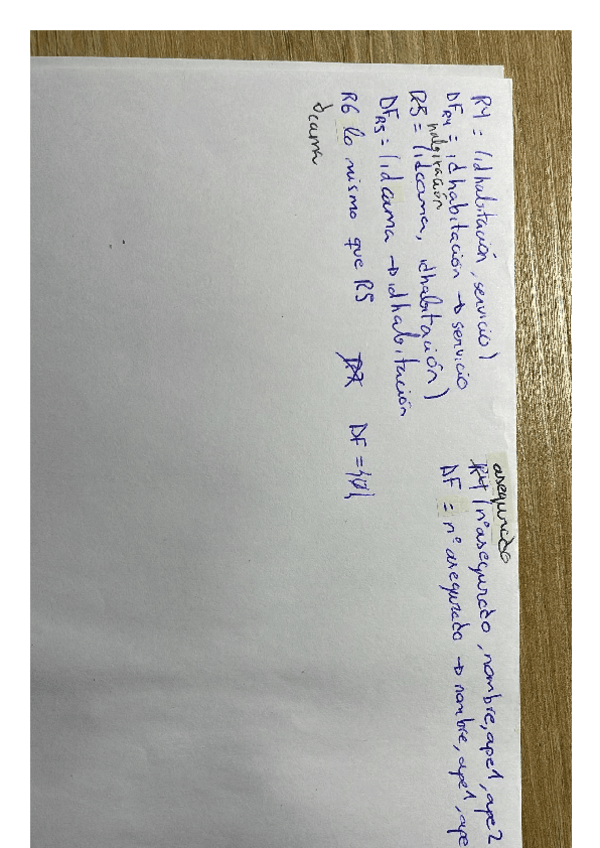 R4 = (idhabitación, servicio)
DF R4 = idhabitación → servicio
habitación
R5 = (idcama, idhabitación)
DF R5 = (idcama → idhabitación
R6 lo mismo que R5 DF = {∅}
cama
asegurado
R4 (nº asegurado, nombre, ape1, ape2
DF = nº asegurado → nombre, ape1, ape